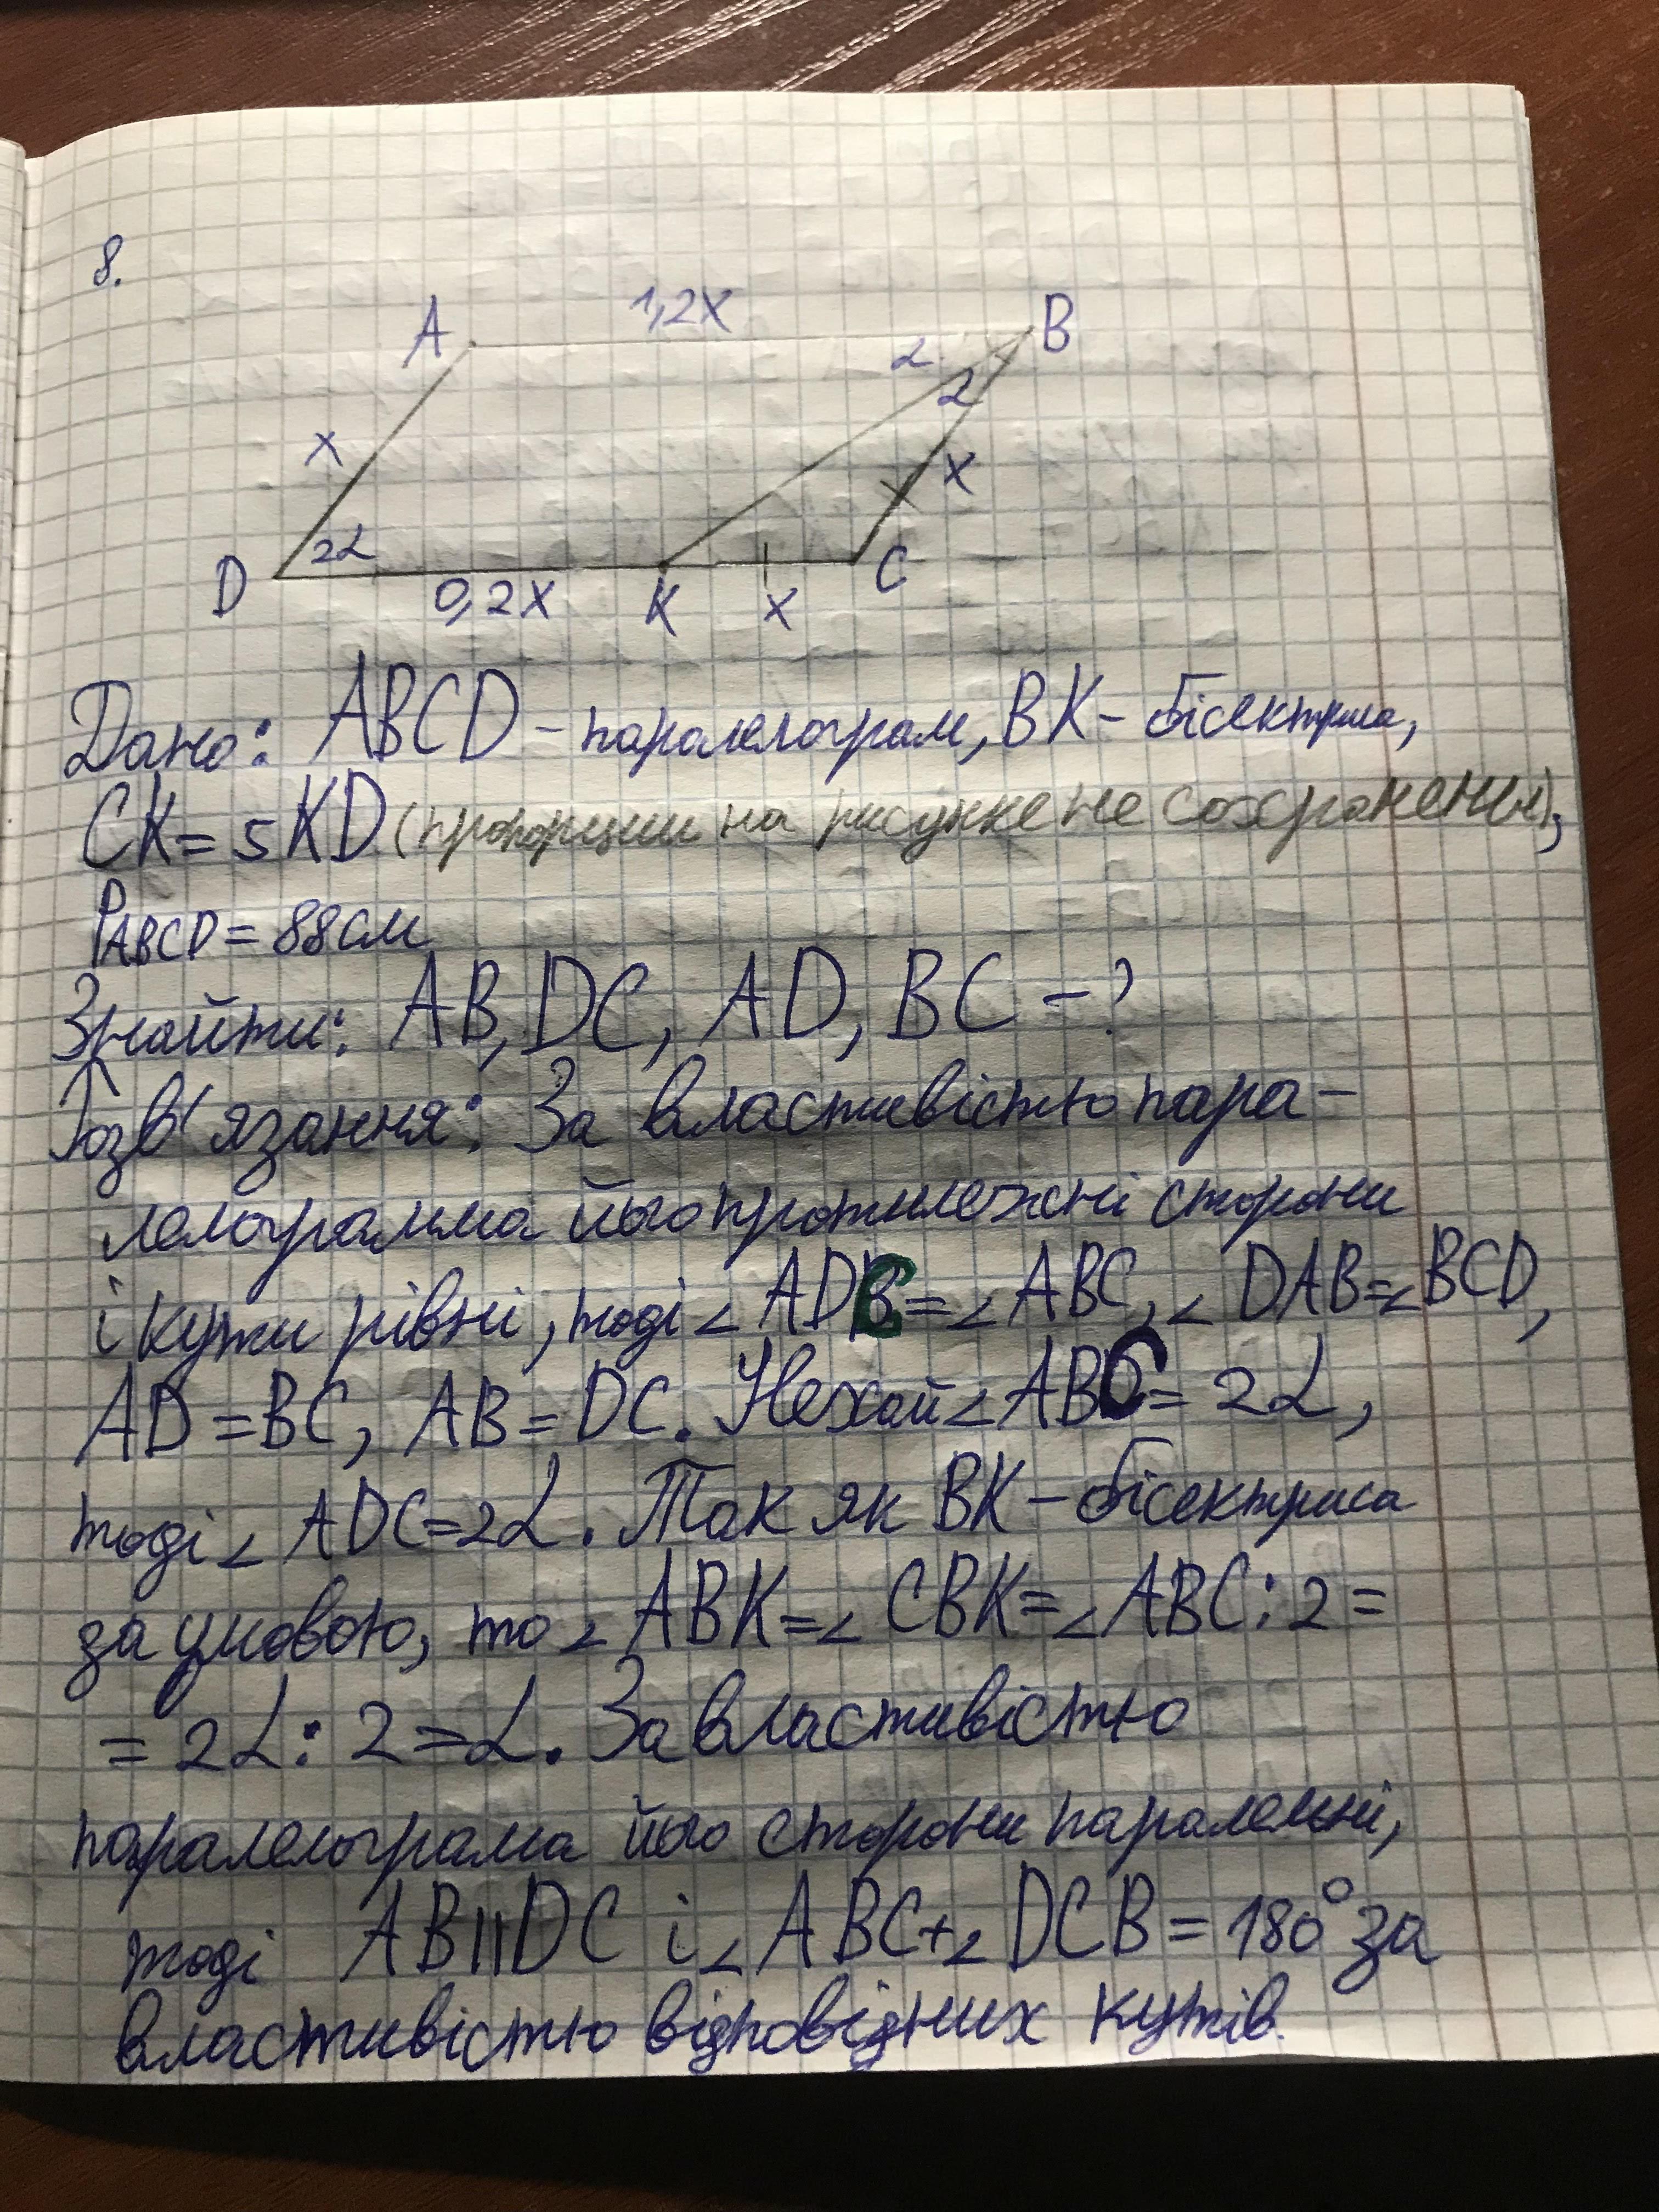 8.
A 1,2x B
α
α
x x
D 2α 0,2x K x C
Дано: ABCD - паралелограм, BK - бісектриса,
CK = 5KD (пропорции на рисунке не сохранены),
PABCD = 88см
Знайти: AB, DC, AD, BC - ?
Розв'язання: За властивістю пара-
лелограмма його протилежні сторони
і кути рівні, тоді ∠ADC = ∠ABC, ∠DAB = ∠BCD,
AD = BC, AB = DC. Нехай ∠ABC = 2α,
тоді ∠ADC = 2α. Так як BK - бісектриса
за умовою, то ∠ABK = ∠CBK = ∠ABC : 2 =
= 2α : 2 = α. За властивістю
паралелограма його сторони паралельні,
тоді AB || DC і ∠ABC + ∠DCB = 180° за
властивістю відповідних кутів.